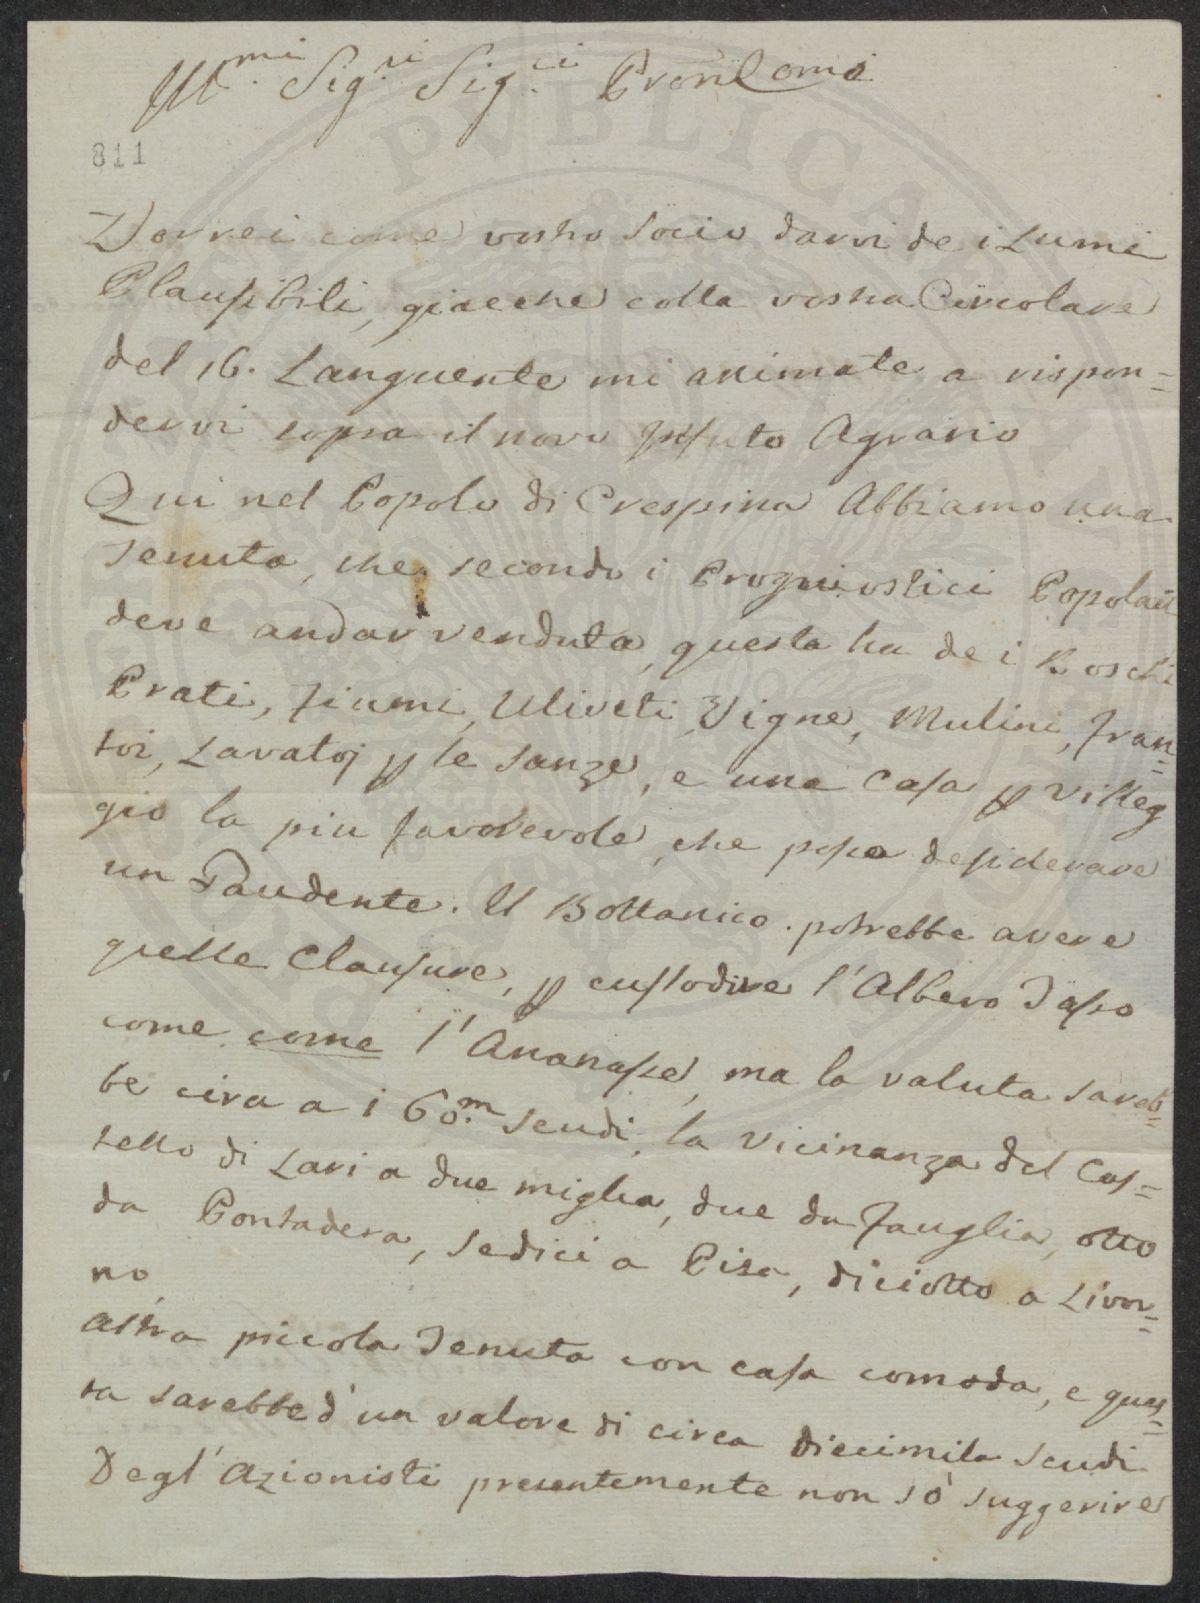 Ill.mi Sig.ri Sig.ri Pron Comi
811
Vorrei come vostro socio darvi de i Lumi
Plausibili, giacche colla vostra Circolare
del 16. Languente mi animate a rispon=
dervi sopra il novo Istituto Agrario
Qui nel Popolo di Crespina Abbiamo una
Tenuta, che secondo i Prognostici Popolari
deve andar venduta, questa ha de i Boschi
Prati, fiumi, Uliveti, Vigne, Mulini, fran=
toi, Lavatoj p le sanze, e una Casa p Villeg
gio la piu favorevole, che possa desiderare
un Gaudente. Il Bottanico potrebbe avere
quelle Clausure, p custodire l'Albero Tasso
come come l'Ananasse, ma la valuta sareb=
be circa a i 60.m scudi, la vicinanza del Cas=
tello di Lari a due miglia, due da Fauglia, otto
da Pontadera, sedici a Pisa, diciotto a Livor=
no
Altra piccola Tenuta con casa comoda, e ques=
ta sarebbe d'un valore di circa diecimila scudi
Degl'Azionisti presentemente non sò suggerire
PVBLICA